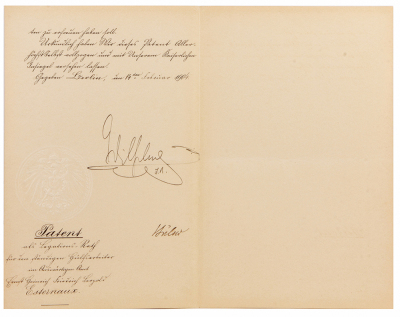 ren zu erfreuen haben soll.
Urkundlich haben Wir dieses Patent Aller-
höchstselbst vollzogen und mit Unserem Kaiserlichen
Insiegel versehen lassen.
Gegeben Berlin, den 14ten Februar
Wilhelm
I.R.
Bülow
Patent
als Legations-Rath
für den ständigen Hülfsarbeiter
im Auswärtigen Amt
Ernst Heinrich Friedrich Leopold
Esternaux.